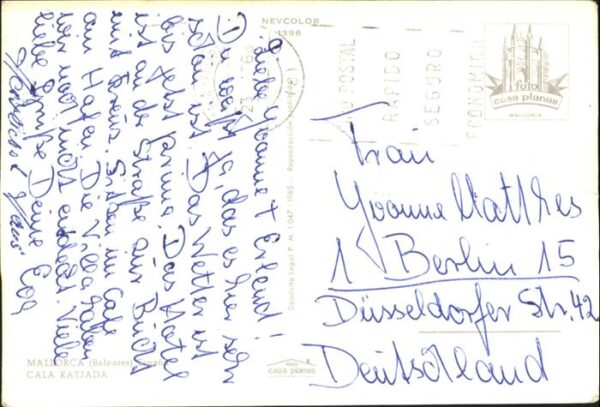 NEVCOLOR
1396
Liebe Yvonne + Erland!
Du weißt ja, das es hier sehr
schön ist. Das Wetter ist
bis jetzt prima. Das Hotel
ist an der Straße aus Bucht
mit Sitzen im Cafe
am Hafen. Die Villa haben
wir noch nicht entdeckt. Viele
liebe Grüße Deine
MALLORCA (Baleares) España
CALA RATJADA
Depósito Legal P. M. 1.047 - 1965 - Reproducción prohibida
foto
casa planas
POSTAL
RAPIDO
SEGURO
ECONOMICO
foto
casa planas
MALLORCA
Frau
Yvonne Matthes
1 Berlin 15
Düsseldorfer Str. 42
Deutschland